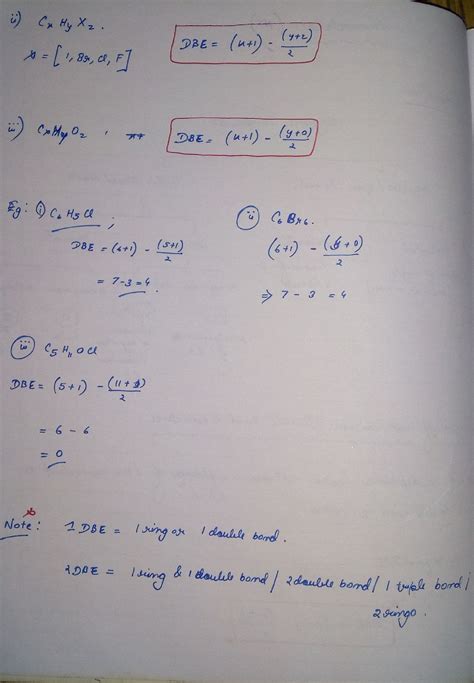 ii) CxHyXz.
DBE = (x+1) - (y+z)/2
X = [I, Br, Cl, F]
iii) CxHyOz,
DBE = (x+1) - (y+0)/2
Eg: (i) C6H5Cl ;
DBE = (6+1) - (5+1)/2
= 7-3 = 4.
(ii) C6Br6.
(6+1) - (6+0)/2
⇒ 7 - 3 = 4
(iii) C5H11OCl
DBE = (5+1) - (11+1)/2
= 6 - 6
= 0
Note: 1 DBE = 1 ring or 1 double bond.
2 DBE = 1 ring & 1 double bond / 2 double bond / 1 triple bond /
2 rings.